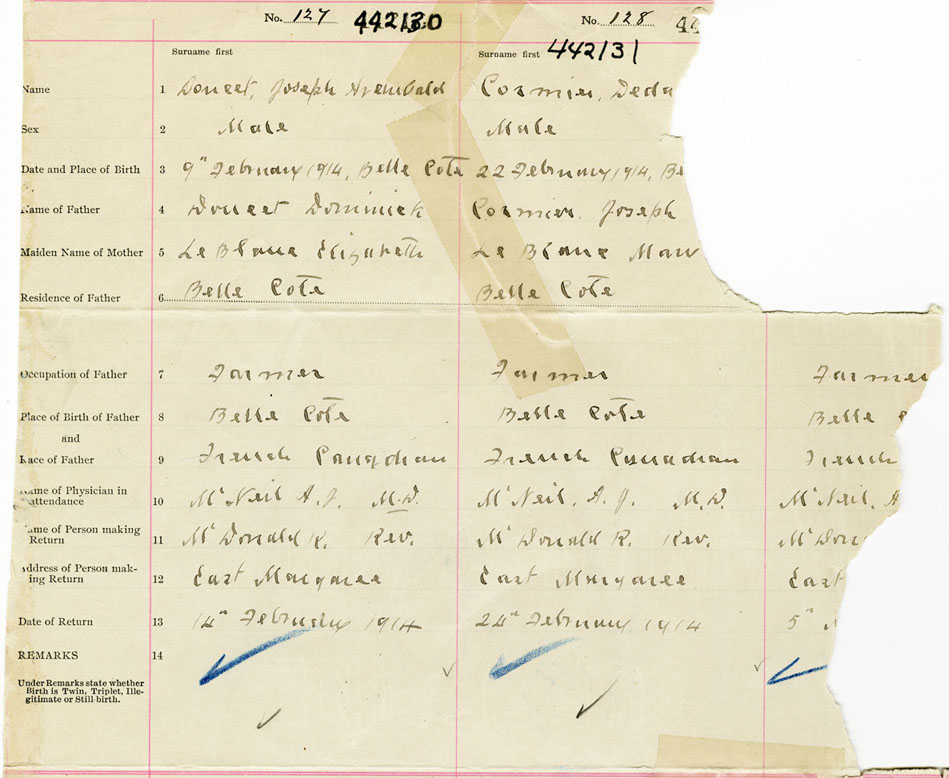 No. 127 442130 No. 128 44
Surname first Surname first 442131
Name 1 Doucet, Joseph Archibald Cormier,
Sex 2 Male Male
Date and Place of Birth 3 9th February 1914, Belle Cote 22 February 1914, Be
Name of Father 4 Doucet Dominick Cormier, Joseph
Maiden Name of Mother 5 Le Blanc Elizabeth Le Blanc
Residence of Father 6 Belle Cote Belle Cote
Occupation of Father 7 Farmer Farmer Farmer
Place of Birth of Father 8 Belle Cote Belle Cote Belle
and
Race of Father 9 French Canadian French Canadian French
Name of Physician in
attendance 10 McNeil A. J. M.D. McNeil, A. J. M.D. McNeil, A
Name of Person making
Return 11 McDonald R. Rev. McDonald R. Rev. McDon
Address of Person mak-
ing Return 12 East Margaree East Margaree East
Date of Return 13 14th February 1914 24th February 1914 5th
REMARKS 14
Under Remarks state whether
Birth is Twin, Triplet, Ille-
gitimate or Still-birth.